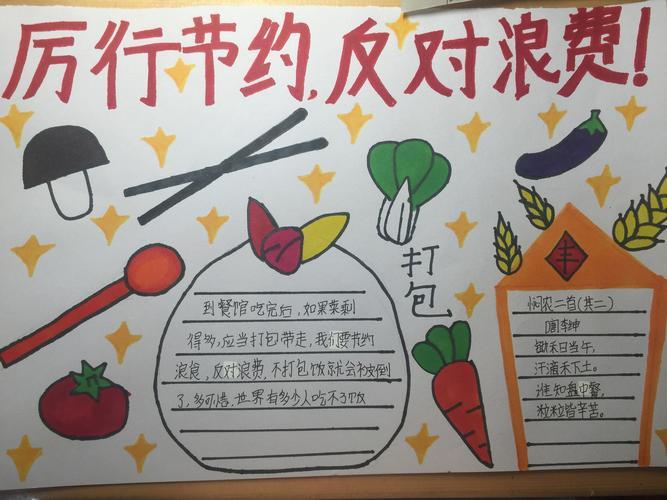 厉行节约,反对浪费!
打
包
到餐馆吃完后,如果菜剩
得多,应当打包带走,我们要节约
浪食,反对浪费,不打包饭就会被倒
了,多可惜,世界有多少人吃不了饭
丰
悯农二首(共二)
李绅
锄禾日当午,
汗滴禾下土。
谁知盘中餐,
粒粒皆辛苦。